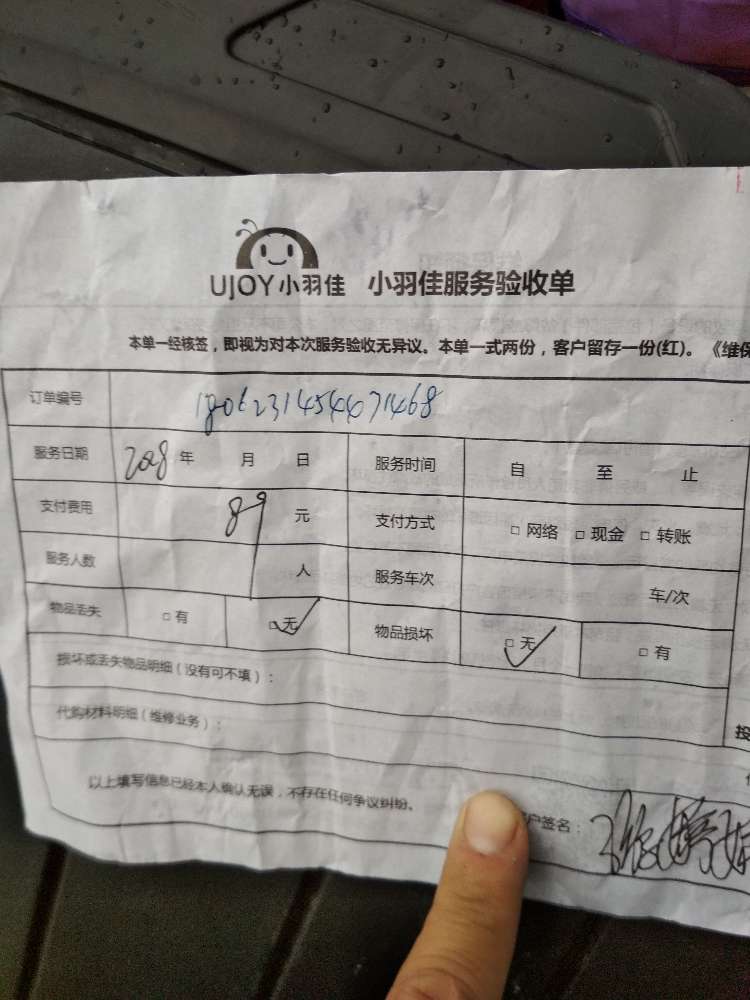 UJOY小羽佳 小羽佳服务验收单
本单一经核签，即视为对本次服务验收无异议。本单一式两份，客户留存一份(红)。《维保
订单编号 1806231454471468
服务日期 年 月 日 服务时间 自 至 止
支付费用 89 元 支付方式 □ 网络 □ 现金 □ 转账
服务人数 人 服务车次 车/次
物品丢失 □ 有 □ 无 物品损坏 □ 无 □ 有
损坏或丢失物品明细（没有可不填）：
代购材料明细（维修业务）：
投
以上填写信息已经本人确认无误，不存在任何争议纠纷。
户签名：